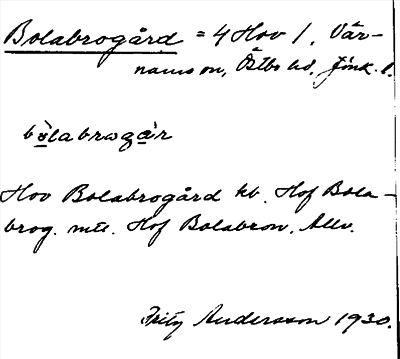 Bolabrogård = 4 Hov 1, Vär-
namo sn, Östbo hd, Jönk. l.
bòlabrogár
Hov Bolabrogård kb. Hof Bola-
brog. mtl. Hof Bolabron, Allv.
Fritz Andersson 1930.